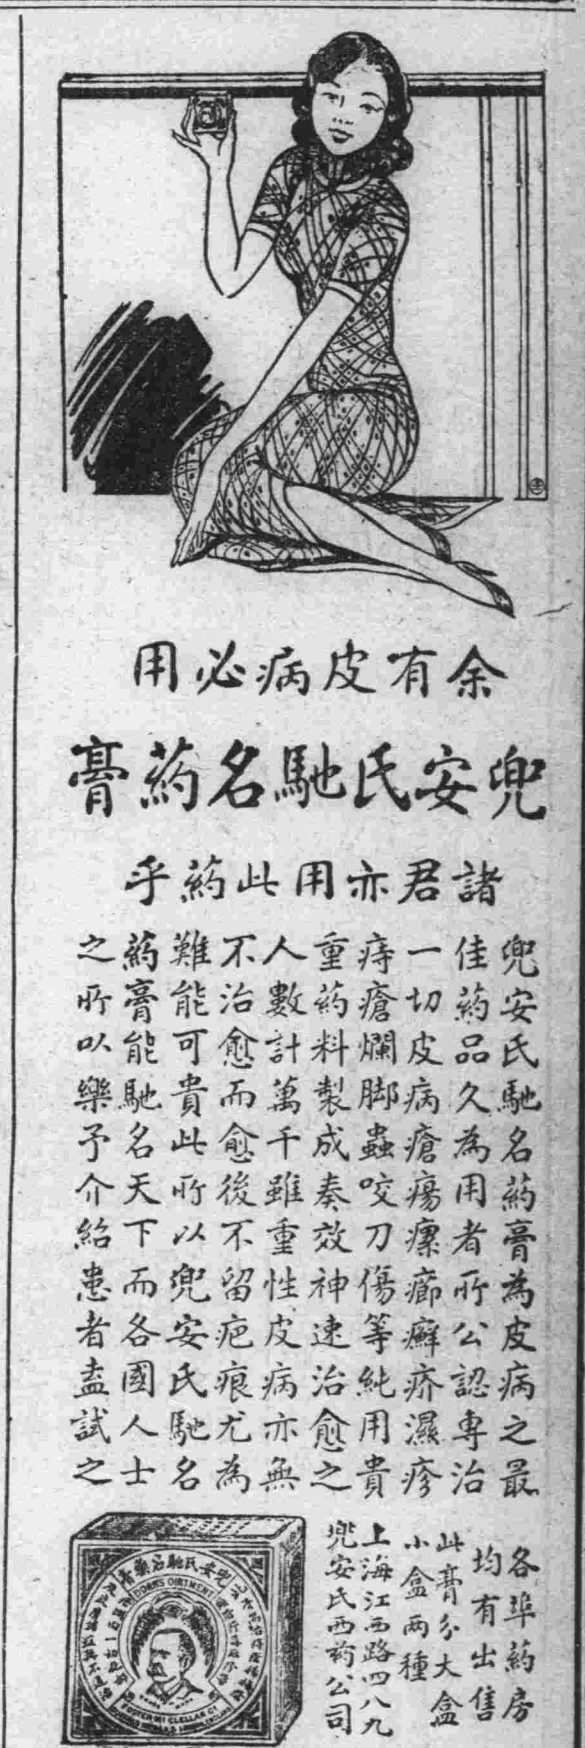 余有皮病必用
兜安氏馳名葯膏
諸君亦用此葯乎
兜安氏馳名葯膏為皮病之最
佳葯品久為用者所公認専治
一切皮病瘡瘍瘰癤癬疥濕疹
痔瘡爛脚蟲咬刀傷等純用貴
重葯料製成奏效神速治愈之
人數計萬千雖重性皮病亦無
不治愈而愈後不留疤痕尤為
難能可貴此所以兜安氏馳名
葯膏能馳名天下而各國人士
之所以樂予介紹患者盍試之
各埠葯房
均有出售
此膏分大盒
小盒両種
上海江西路四八九
兜安氏西葯公司
兜安氏馳名藥膏
DOAN'S OINTMENT
FOSTER McCLELLAN Co